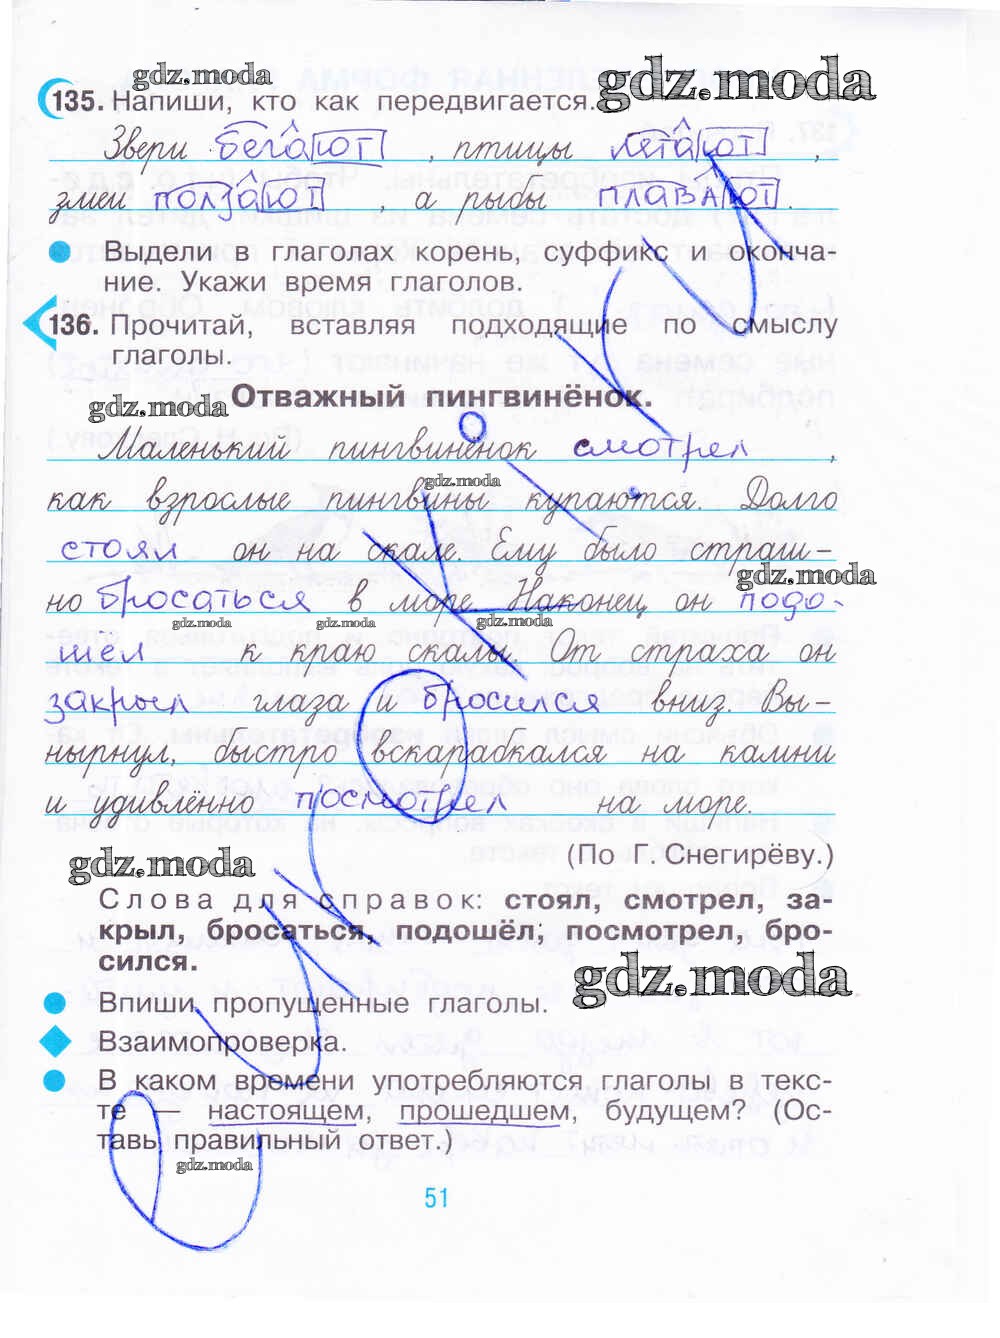 gdz.moda
gdz.moda
135. Напиши, кто как передвигается.
Звери бегают, птицы летают,
змеи ползают, а рыбы плавают.
Выдели в глаголах корень, суффикс и оконча-
ние. Укажи время глаголов.
136. Прочитай, вставляя подходящие по смыслу
глаголы.
gdz.moda
Отважный пингвинёнок.
Маленький пингвинёнок смотрел,
gdz.moda
как взрослые пингвины купаются. Долго
стоял он на скале. Ему было страш-
gdz.moda
но бросаться в море. Наконец он подо-
gdz.moda gdz.moda gdz.moda
шёл к краю скалы. От страха он
закрыл глаза и бросился вниз. Вы-
нырнул, быстро вскарабкался на камни
и удивлённо посмотрел на море.
(По Г. Снегирёву.)
gdz.moda
Слова для справок: стоял, смотрел, за-
крыл, бросаться, подошёл, посмотрел, бро-
сился.
gdz.moda
Впиши пропущенные глаголы.
Взаимопроверка.
В каком времени употребляются глаголы в текс-
те — настоящем, прошедшем, будущем? (Ос-
тавь правильный ответ.)
gdz.moda
51